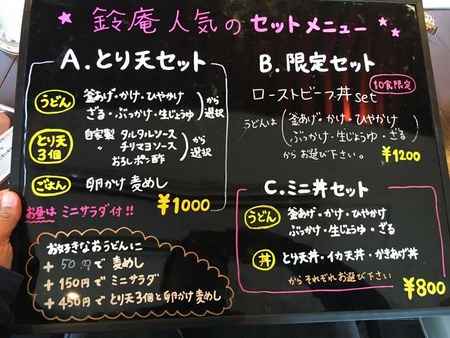 鈴庵人気のセットメニュー
A.とり天セット
うどん 釜あげ・かけ・ひやかけ
ざる・ぶっかけ・生じょうゆ から選択
とり天3個 自家製 タルタルソース
〃 チリマヨソース
おろしポン酢 から選択
ごはん 卵かけ麦めし
お昼はミニサラダ付!! ¥1000
お好きなおうどんに
+50円で麦めし
+150円でミニサラダ
+450円でとり天3個と卵かけ麦めし
B.限定セット
10食限定
ローストビーフ丼set
うどんは 釜あげ・かけ・ひやかけ
ぶっかけ・生じょうゆ・ざる
からお選び下さい。 ¥1200
C.ミニ丼セット
うどん 釜あげ・かけ・ひやかけ
ぶっかけ・生じょうゆ・ざる
丼 とり天丼・イカ天丼・かきあげ丼
からそれぞれお選び下さい
¥800